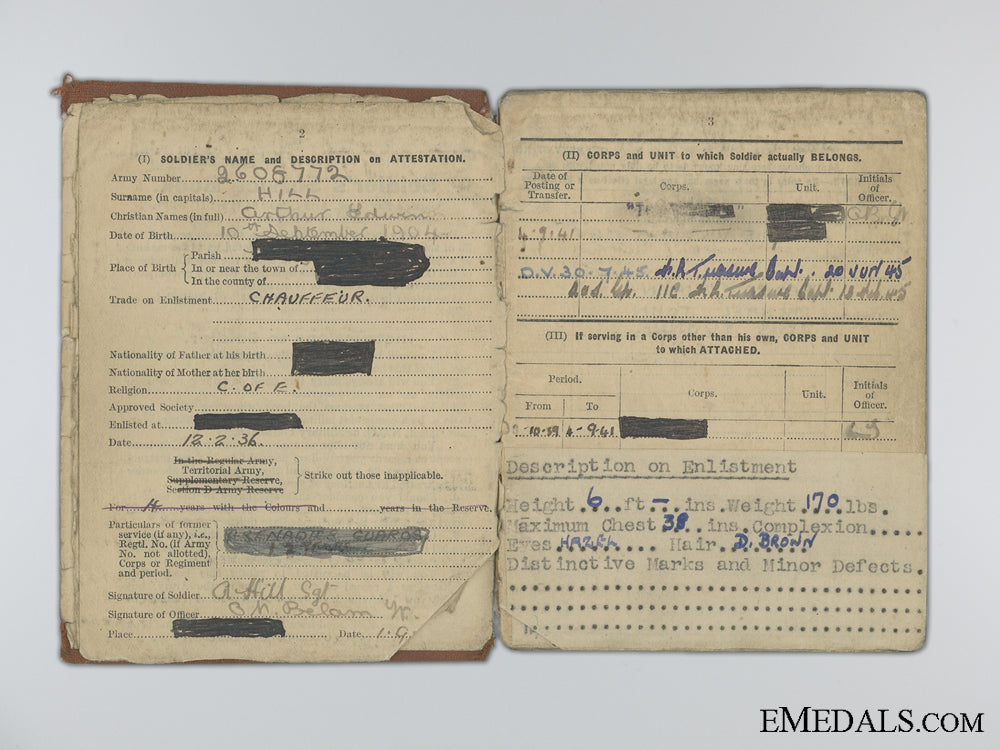 2
(I) SOLDIER'S NAME and DESCRIPTION on ATTESTATION.
Army Number 2605772
Surname (in capitals) HILL
Christian Names (in full) Arthur Edwin
Date of Birth 10th September 1904
Place of Birth { Parish
In or near the town of
In the county of
Trade on Enlistment CHAUFFEUR.
Nationality of Father at his birth
Nationality of Mother at her birth
Religion C. OF E.
Approved Society
Enlisted at
Date 12.2.36
In the Regular Army,
Territorial Army,
Supplementary Reserve,
Section D Army Reserve
} Strike out those inapplicable.
For 4 years with the Colours and years in the Reserve.
Particulars of former service (if any), i.e., Regtl. No. (if Army No. not allotted), Corps or Regiment and period.
GRENADIER GUARDS
Signature of Soldier A Hill Sgt
Signature of Officer
Place Date
3
(II) CORPS and UNIT to which Soldier actually BELONGS.
Date of Posting or Transfer. Corps. Unit. Initials of Officer.
4.9.41
D.V. 30.7.45 Capt. 20 JUN 45
11C Capt
(III) If serving in a Corps other than his own, CORPS and UNIT
to which ATTACHED.
Period. Corps. Unit. Initials of Officer.
From To
10-39 4-9-41
Description on Enlistment
Height 6 ft – ins. Weight 170 lbs.
Maximum Chest 38 ins. Complexion
Eyes HAZEL Hair D. BROWN
Distinctive Marks and Minor Defects.
EMEDALS.COM